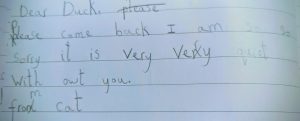 Dear Duck. please
Please come back I am so so
sorry it is very very quiet
with out you.
from cat